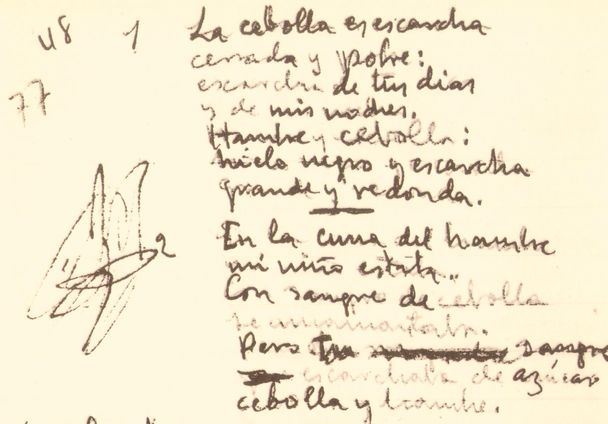 48 1
La cebolla es escarcha
cerrada y pobre:
77
escarcha de tus dias
y de mis noches.
Hambre y cebolla:
hielo negro y escarcha
grande y redonda.
2
En la cuna del hambre
mi niño estaba.
Con sangre de cebolla
se amamantaba.
Pero tu sangre
escarchaba de azúcar
cebolla y hambre.